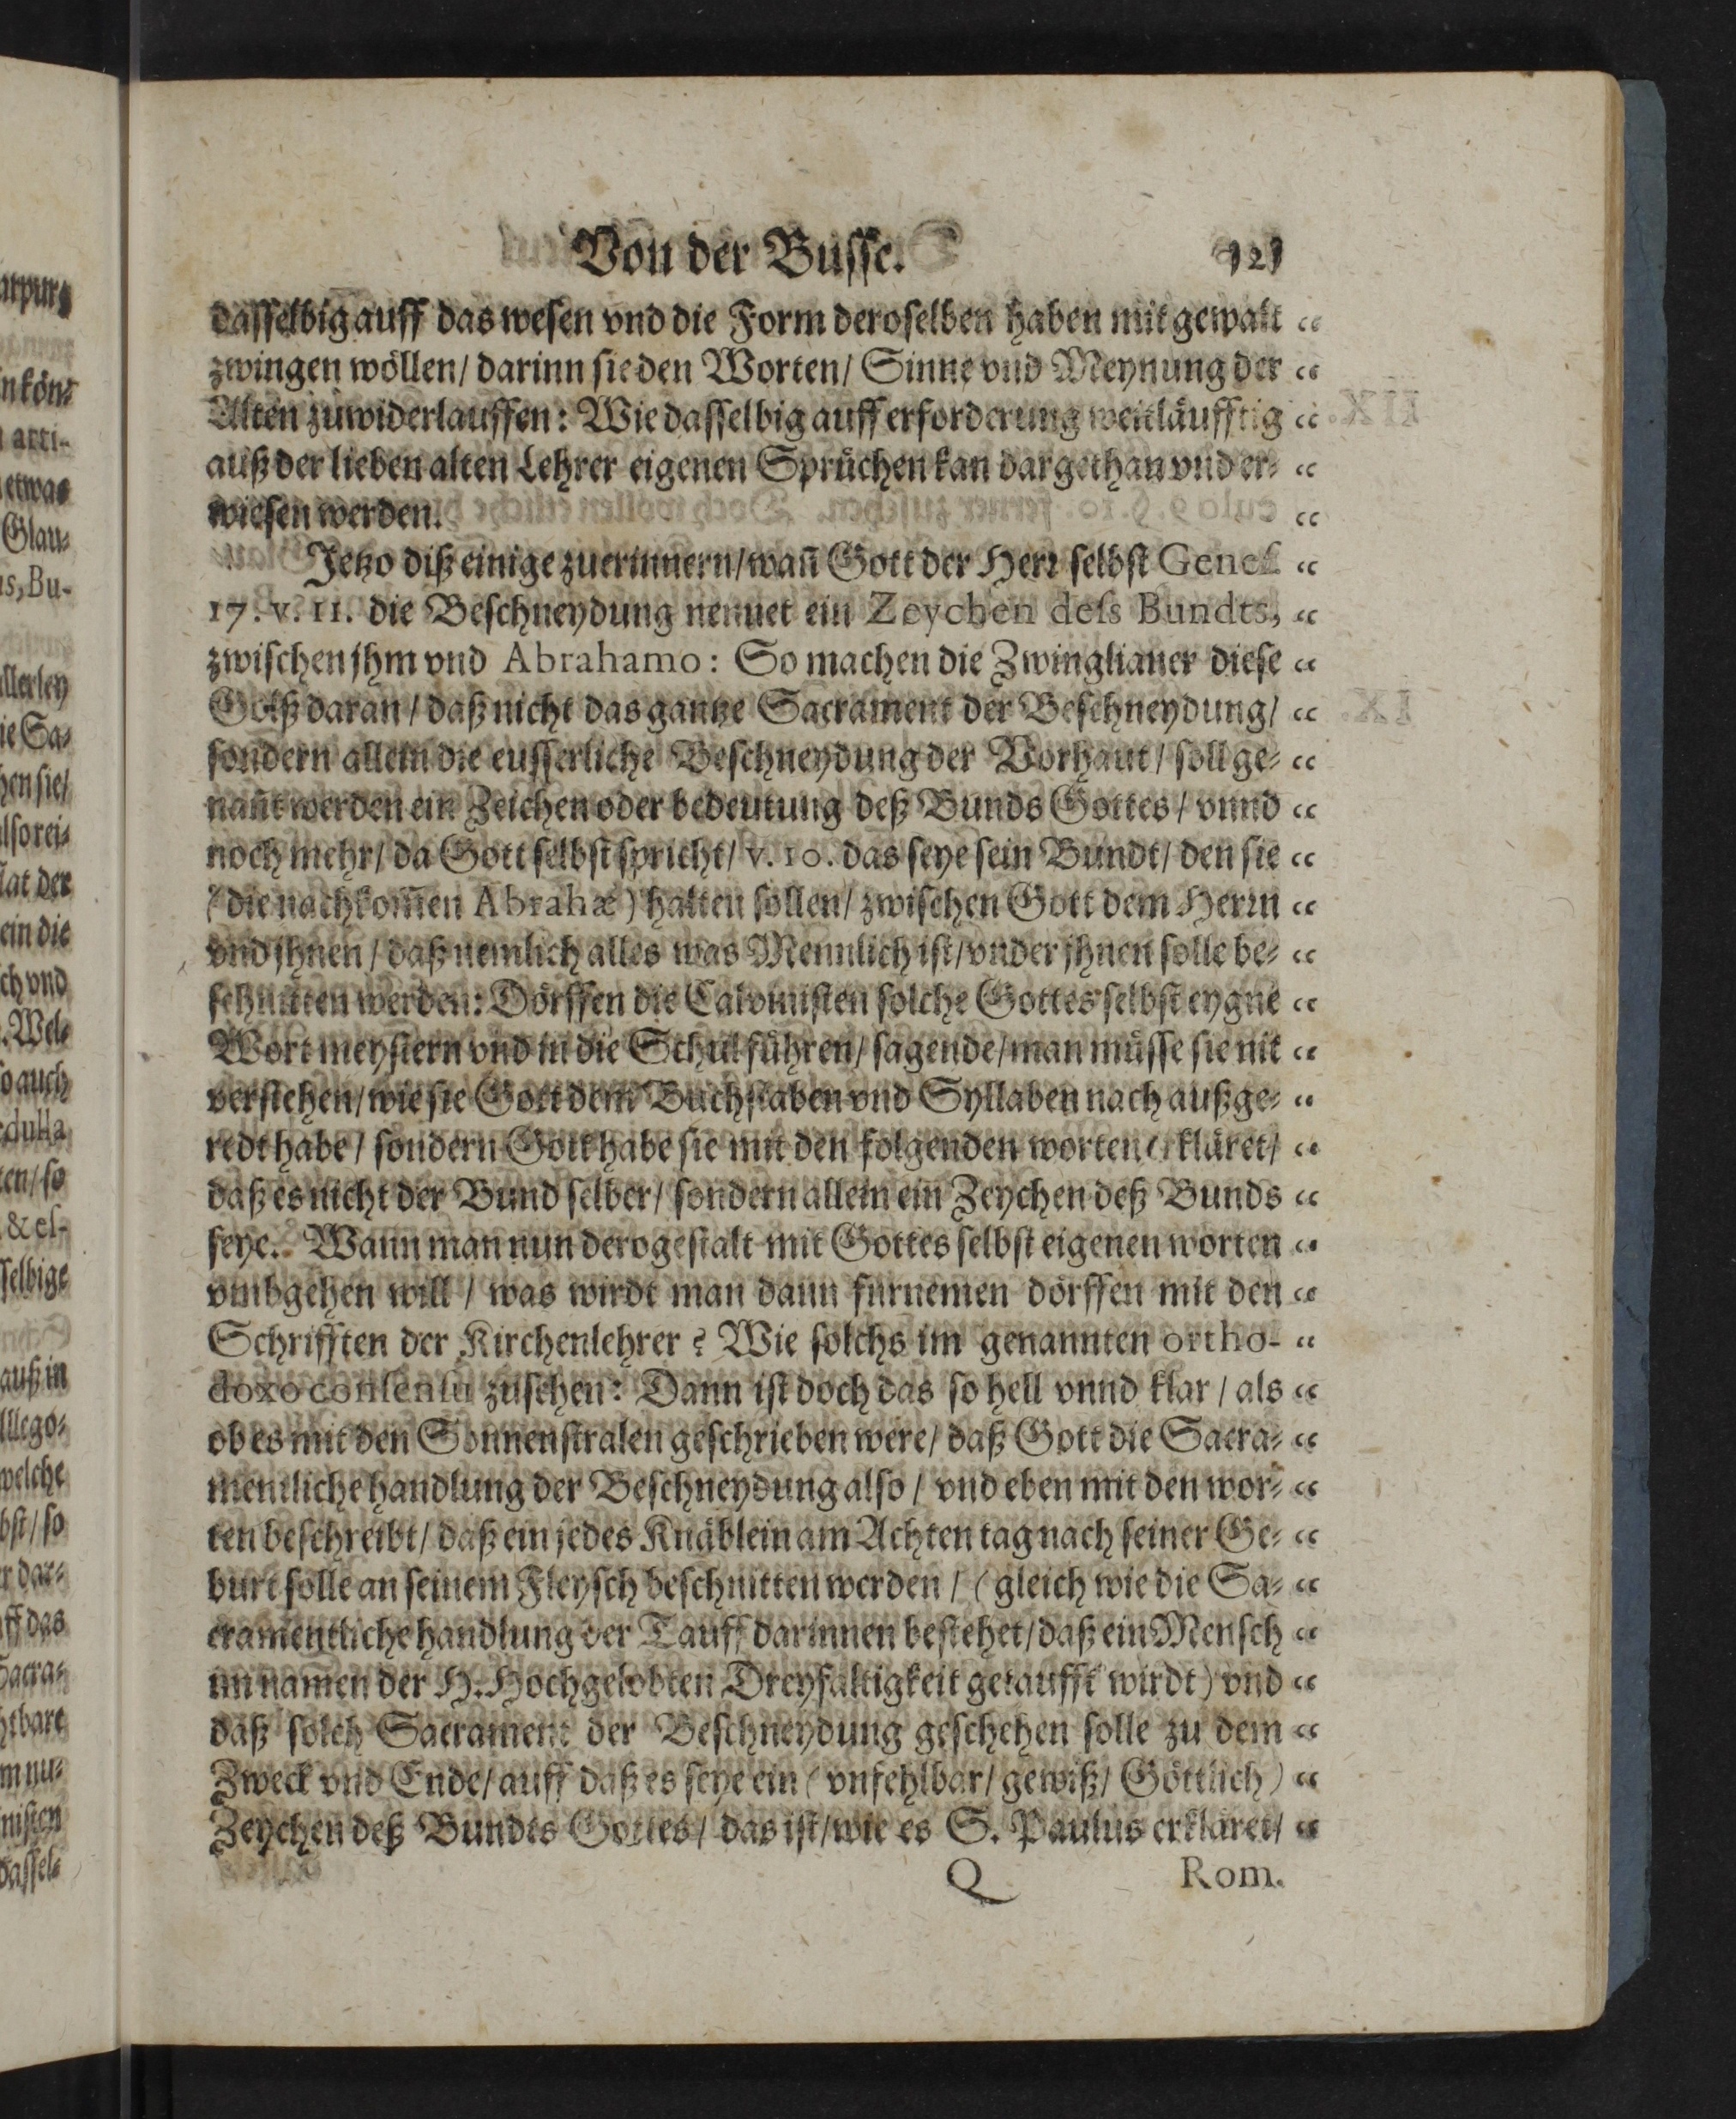 Von der Busse. 121
dasselbig auff das wesen vnd die Form deroselben haben mit gewalt “
zwingen wöllen/ darinn sie den Worten/ Sinne vnd Meynung der “
Alten zuwiderlauffen: Wie dasselbig auff erforderung weitläufftig “
auß der lieben alten Lehrer eigenen Sprüchen kan dargethan vnd er- “
wiesen werden. “
Jetzo diß einige zuerinnern/ wañ Gott der Herr selbst Genes. “
17. v. 11. die Beschneydung nennet ein Zeychen dess Bundts, “
zwischen jhm vnd Abrahamo: So machen die Zwinglianer diese “
Gloß daran/ daß nicht das gantze Sacrament der Beschneydung/ “
sondern allein die eusserliche Beschneydung der Vorhaut/ soll ge- “
nañt werden ein Zeichen oder bedeutung deß Bunds Gottes/ vnnd “
noch mehr/ da Gott selbst spricht/ v. 10. das seye sein Bundt/ den sie “
(die nachkom̃en Abrahæ) halten sollen/ zwischen Gott dem Herrn “
vnd jhnen/ daß nemlich alles was Mennlich ist/ vnder jhnen solle be- “
schnitten werden: Dörffen die Calvinisten solche Gottes selbst eygne “
Wort meystern vnd in die Schul führen/ sagende/ man müsse sie nit “
verstehen/ wie sie Gott dem Buchstaben vnd Syllaben nach außge- “
redt habe/ sondern Gott habe sie mit den folgenden worten erkläret/ “
daß es nicht der Bund selber/ sondern allein ein Zeychen deß Bunds “
seye. Wann man nun derogestalt mit Gottes selbst eigenen worten “
vmbgehen will/ was wirdt man dann fürnemen dörffen mit den “
Schrifften der Kirchenlehrer? Wie solchs im genannten ortho- “
doxo consensu zusehen: Dann ist doch das so hell vnnd klar/ als “
ob es mit den Sonnenstralen geschrieben were/ daß Gott die Sacra- “
mentliche handlung der Beschneydung also/ vnd eben mit den wor- “
ten beschreibt/ daß ein jedes Knäblein am Achten tag nach seiner Ge- “
burt solle an seinem Fleysch beschnitten werden/ (gleich wie die Sa- “
cramentliche handlung der Tauff darinnen bestehet/ daß ein Mensch “
im namen der H. Hochgelobten Dreyfaltigkeit getaufft wirdt) vnd “
daß solch Sacrament der Beschneydung geschehen solle zu dem “
Zweck vnd Ende/ auff daß es seye ein (vnfehlbar/ gewiß/ Göttlich) “
Zeychen deß Bundes Gottes/ das ist/ wie es S. Paulus erkläret/ “
Q Rom.